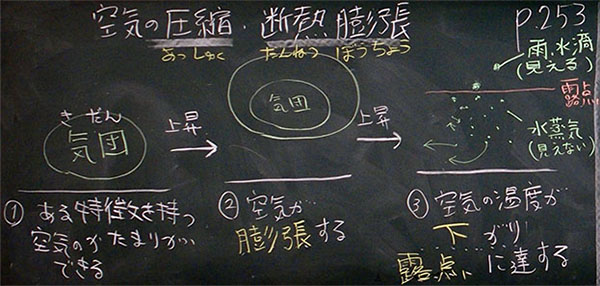 空気の圧縮・断熱膨張
あっしゅく だんねつ ぼうちょう
P.253
きだん
気団
上昇
気団
上昇
雨、水滴
(見える)
露点
水蒸気
(見えない)
① ある特徴を持つ
空気のかたまりが、
できる
② 空気が
膨張する
③ 空気の温度が
下がり
露点に達する